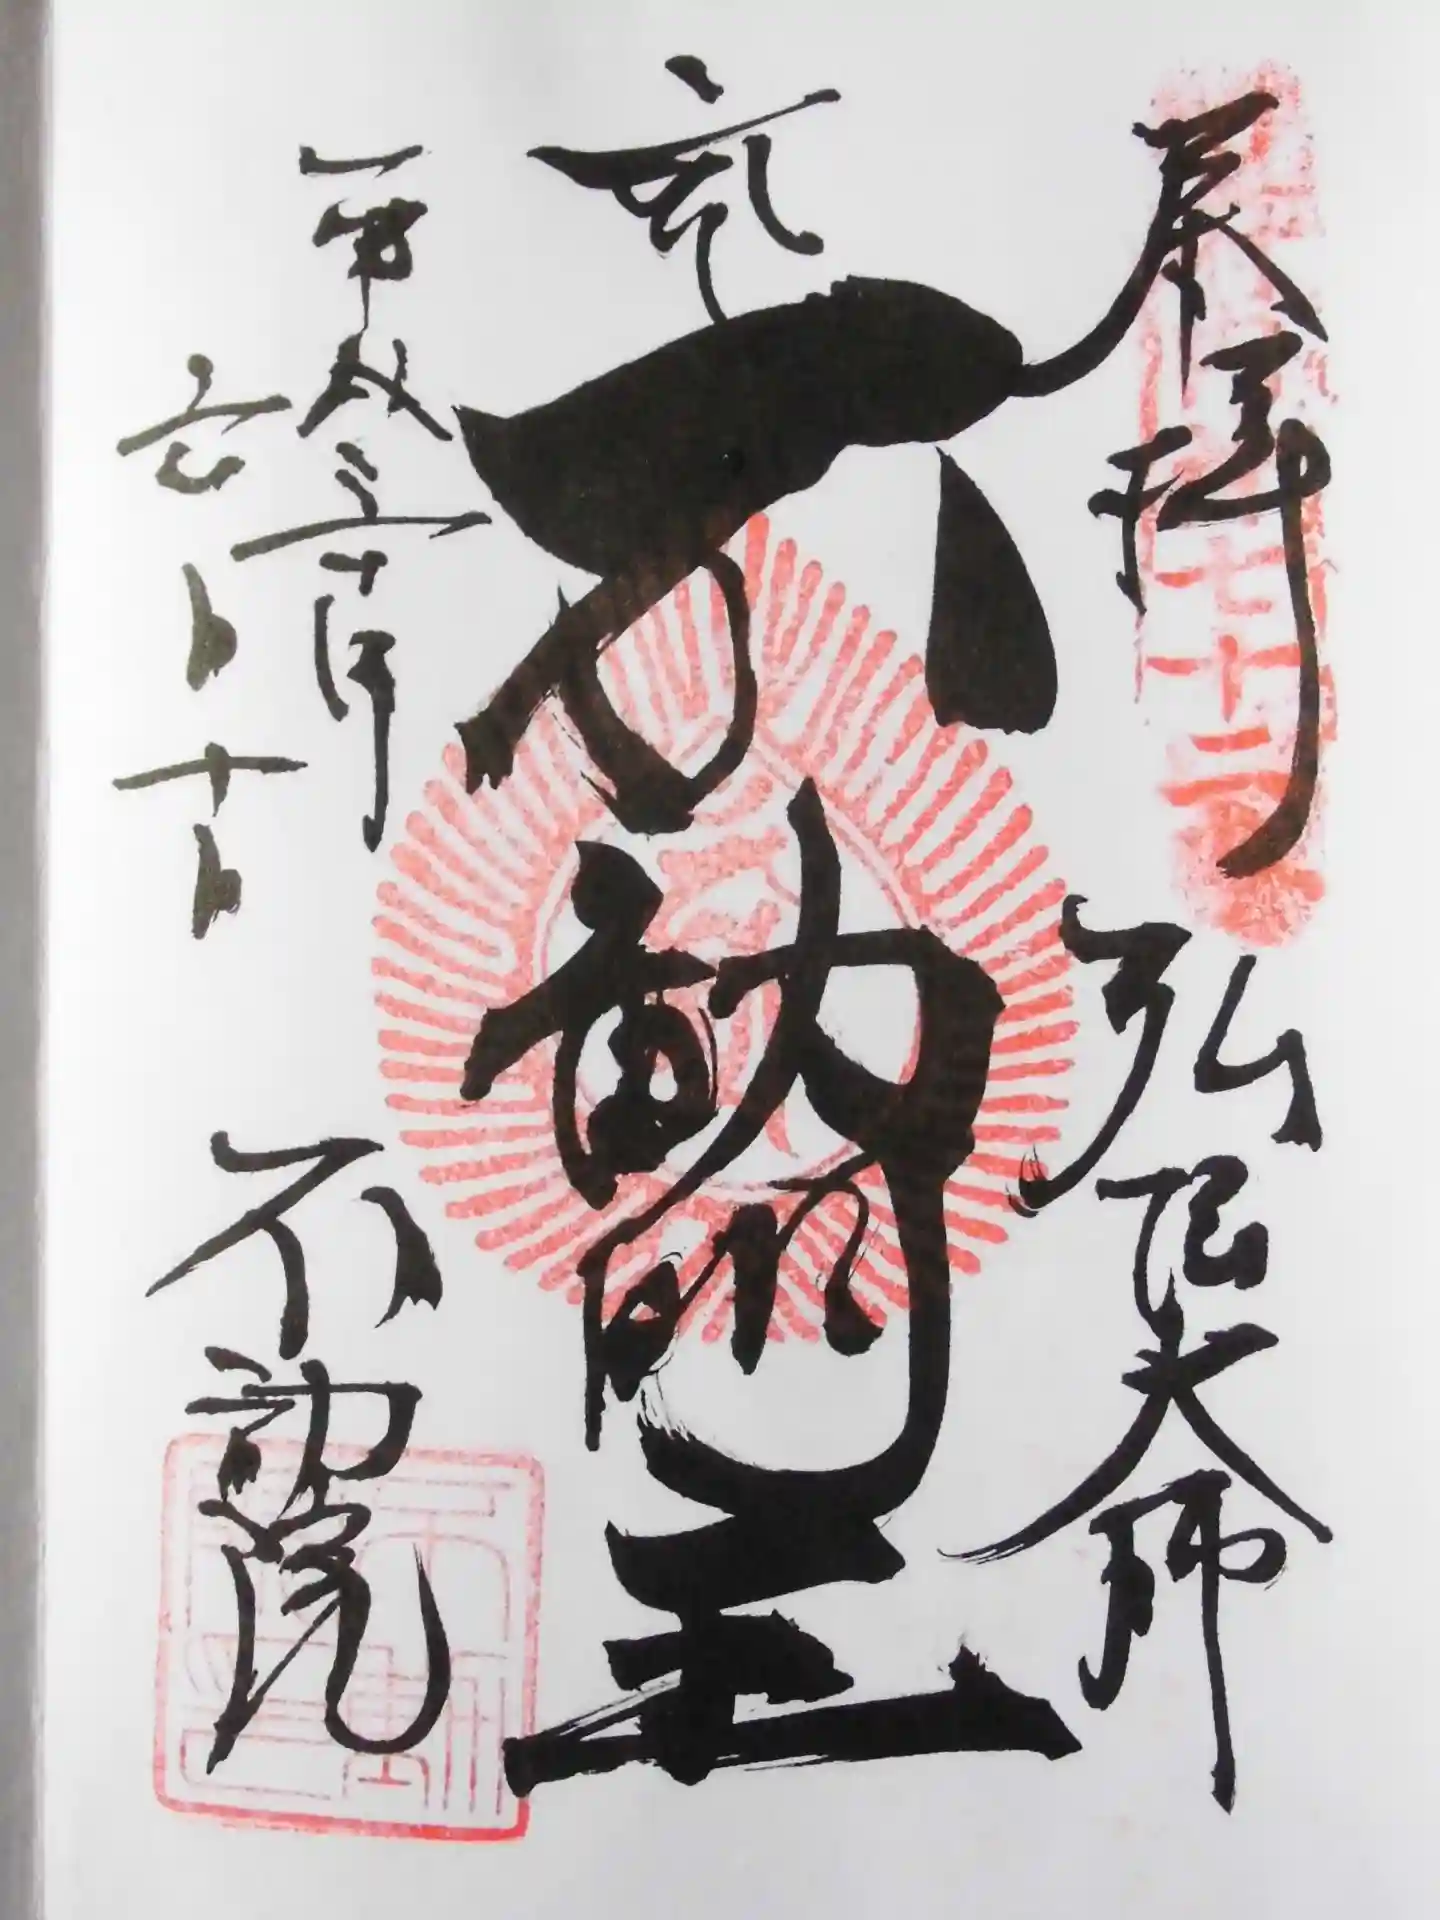 七十二
奉拝　弘法大師
不動明王
平成三十年
六月十日
不動院